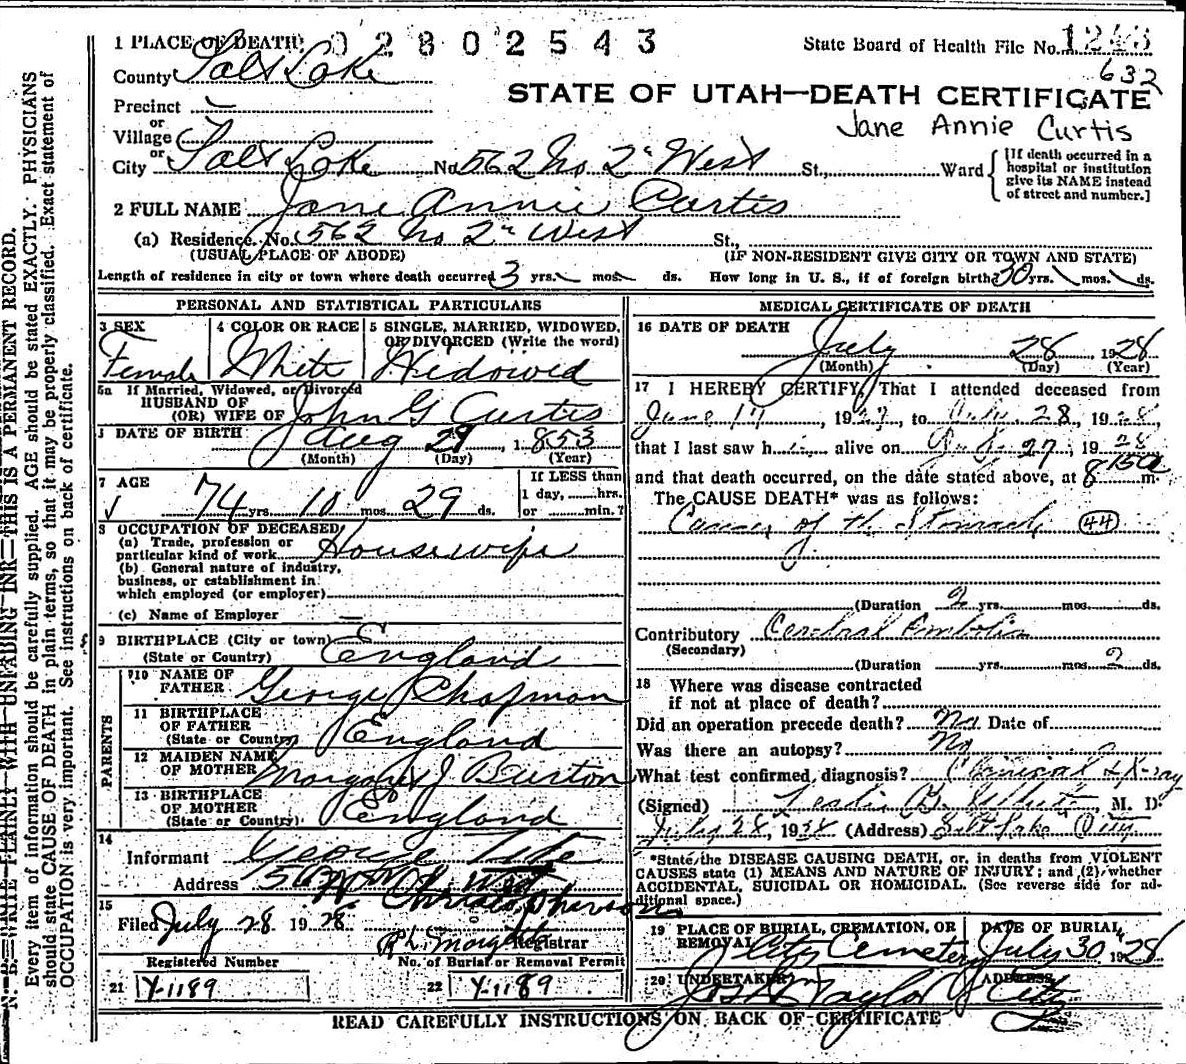 1 PLACE OF DEATH: 0 2 8 0 2 5 4 3
State Board of Health File No. 1243
632
County Salt Lake
STATE OF UTAH—DEATH CERTIFICATE
Precinct
or
Village
Jane Annie Curtis
or
City Salt Lake No. 562 No. 2" West St., Ward
[If death occurred in a hospital or institution give its NAME instead of street and number.]
2 FULL NAME Jane Annie Curtis
(a) Residence. No. 562 No 2" West St.,
(USUAL PLACE OF ABODE) (IF NON-RESIDENT GIVE CITY OR TOWN AND STATE)
Length of residence in city or town where death occurred 3 yrs. mos. ds. How long in U. S., if of foreign birth? 50 yrs. mos. ds.
PERSONAL AND STATISTICAL PARTICULARS
3 SEX
Female
4 COLOR OR RACE
White
5 SINGLE, MARRIED, WIDOWED, OR DIVORCED (Write the word)
Widowed
5a If Married, Widowed, or Divorced
HUSBAND OF
(OR) WIFE OF John G Curtis
DATE OF BIRTH Aug 29, 1853
(Month) (Day) (Year)
7 AGE
74 yrs. 10 mos. 29 ds.
If LESS than
1 day, hrs.
or min.?
8 OCCUPATION OF DECEASED
(a) Trade, profession or
particular kind of work Housewife
(b) General nature of industry,
business, or establishment in
which employed (or employer)
(c) Name of Employer —
9 BIRTHPLACE (City or town)
(State or Country) England
PARENTS
10 NAME OF
FATHER George Chapman
11 BIRTHPLACE
OF FATHER
(State or Country) England
12 MAIDEN NAME
OF MOTHER Margaret J Burton
13 BIRTHPLACE
OF MOTHER
(State or Country) England
14
Informant George
Address 562 No 2 West
15
Filed July 28 1928
Christopherson
Registrar
Registered Number
No. of Burial or Removal Permit
21 Y-1189
22 Y-1189
MEDICAL CERTIFICATE OF DEATH
16 DATE OF DEATH
July 28, 1928
(Month) (Day) (Year)
17 I HEREBY CERTIFY, That I attended deceased from
June 17, 1927, to 28, 1928,
that I last saw h alive on 27, 1928
and that death occurred, on the date stated above, at 8 15a m.
The CAUSE DEATH* was as follows:
Cancer of the Stomach (44)
(Duration 2 yrs. mos. ds.
Contributory Cerebral Embolism
(Secondary)
(Duration yrs. mos. 2 ds.
18 Where was disease contracted
if not at place of death?
Did an operation precede death? No Date of
Was there an autopsy? No
What test confirmed diagnosis? Clinical & X-ray
(Signed) M. D.
July 28, 1928 (Address) Salt Lake City
*State the DISEASE CAUSING DEATH, or, in deaths from VIOLENT
CAUSES state (1) MEANS AND NATURE OF INJURY; and (2) whether
ACCIDENTAL, SUICIDAL OR HOMICIDAL. (See reverse side for ad-
ditional space.)
19 PLACE OF BURIAL, CREMATION, OR
REMOVAL City Cemetery
DATE OF BURIAL
July 30 1928
20 UNDERTAKER
Taylor
ADDRESS
City
READ CAREFULLY INSTRUCTIONS ON BACK OF CERTIFICATE
N. B.—WRITE PLAINLY WITH UNFADING INK—THIS IS A PERMANENT RECORD.
Every item of information should be carefully supplied. AGE should be stated EXACTLY. PHYSICIANS
should state CAUSE OF DEATH in plain terms, so that it may be properly classified. Exact statement of
OCCUPATION is very important. See instructions on back of certificate.